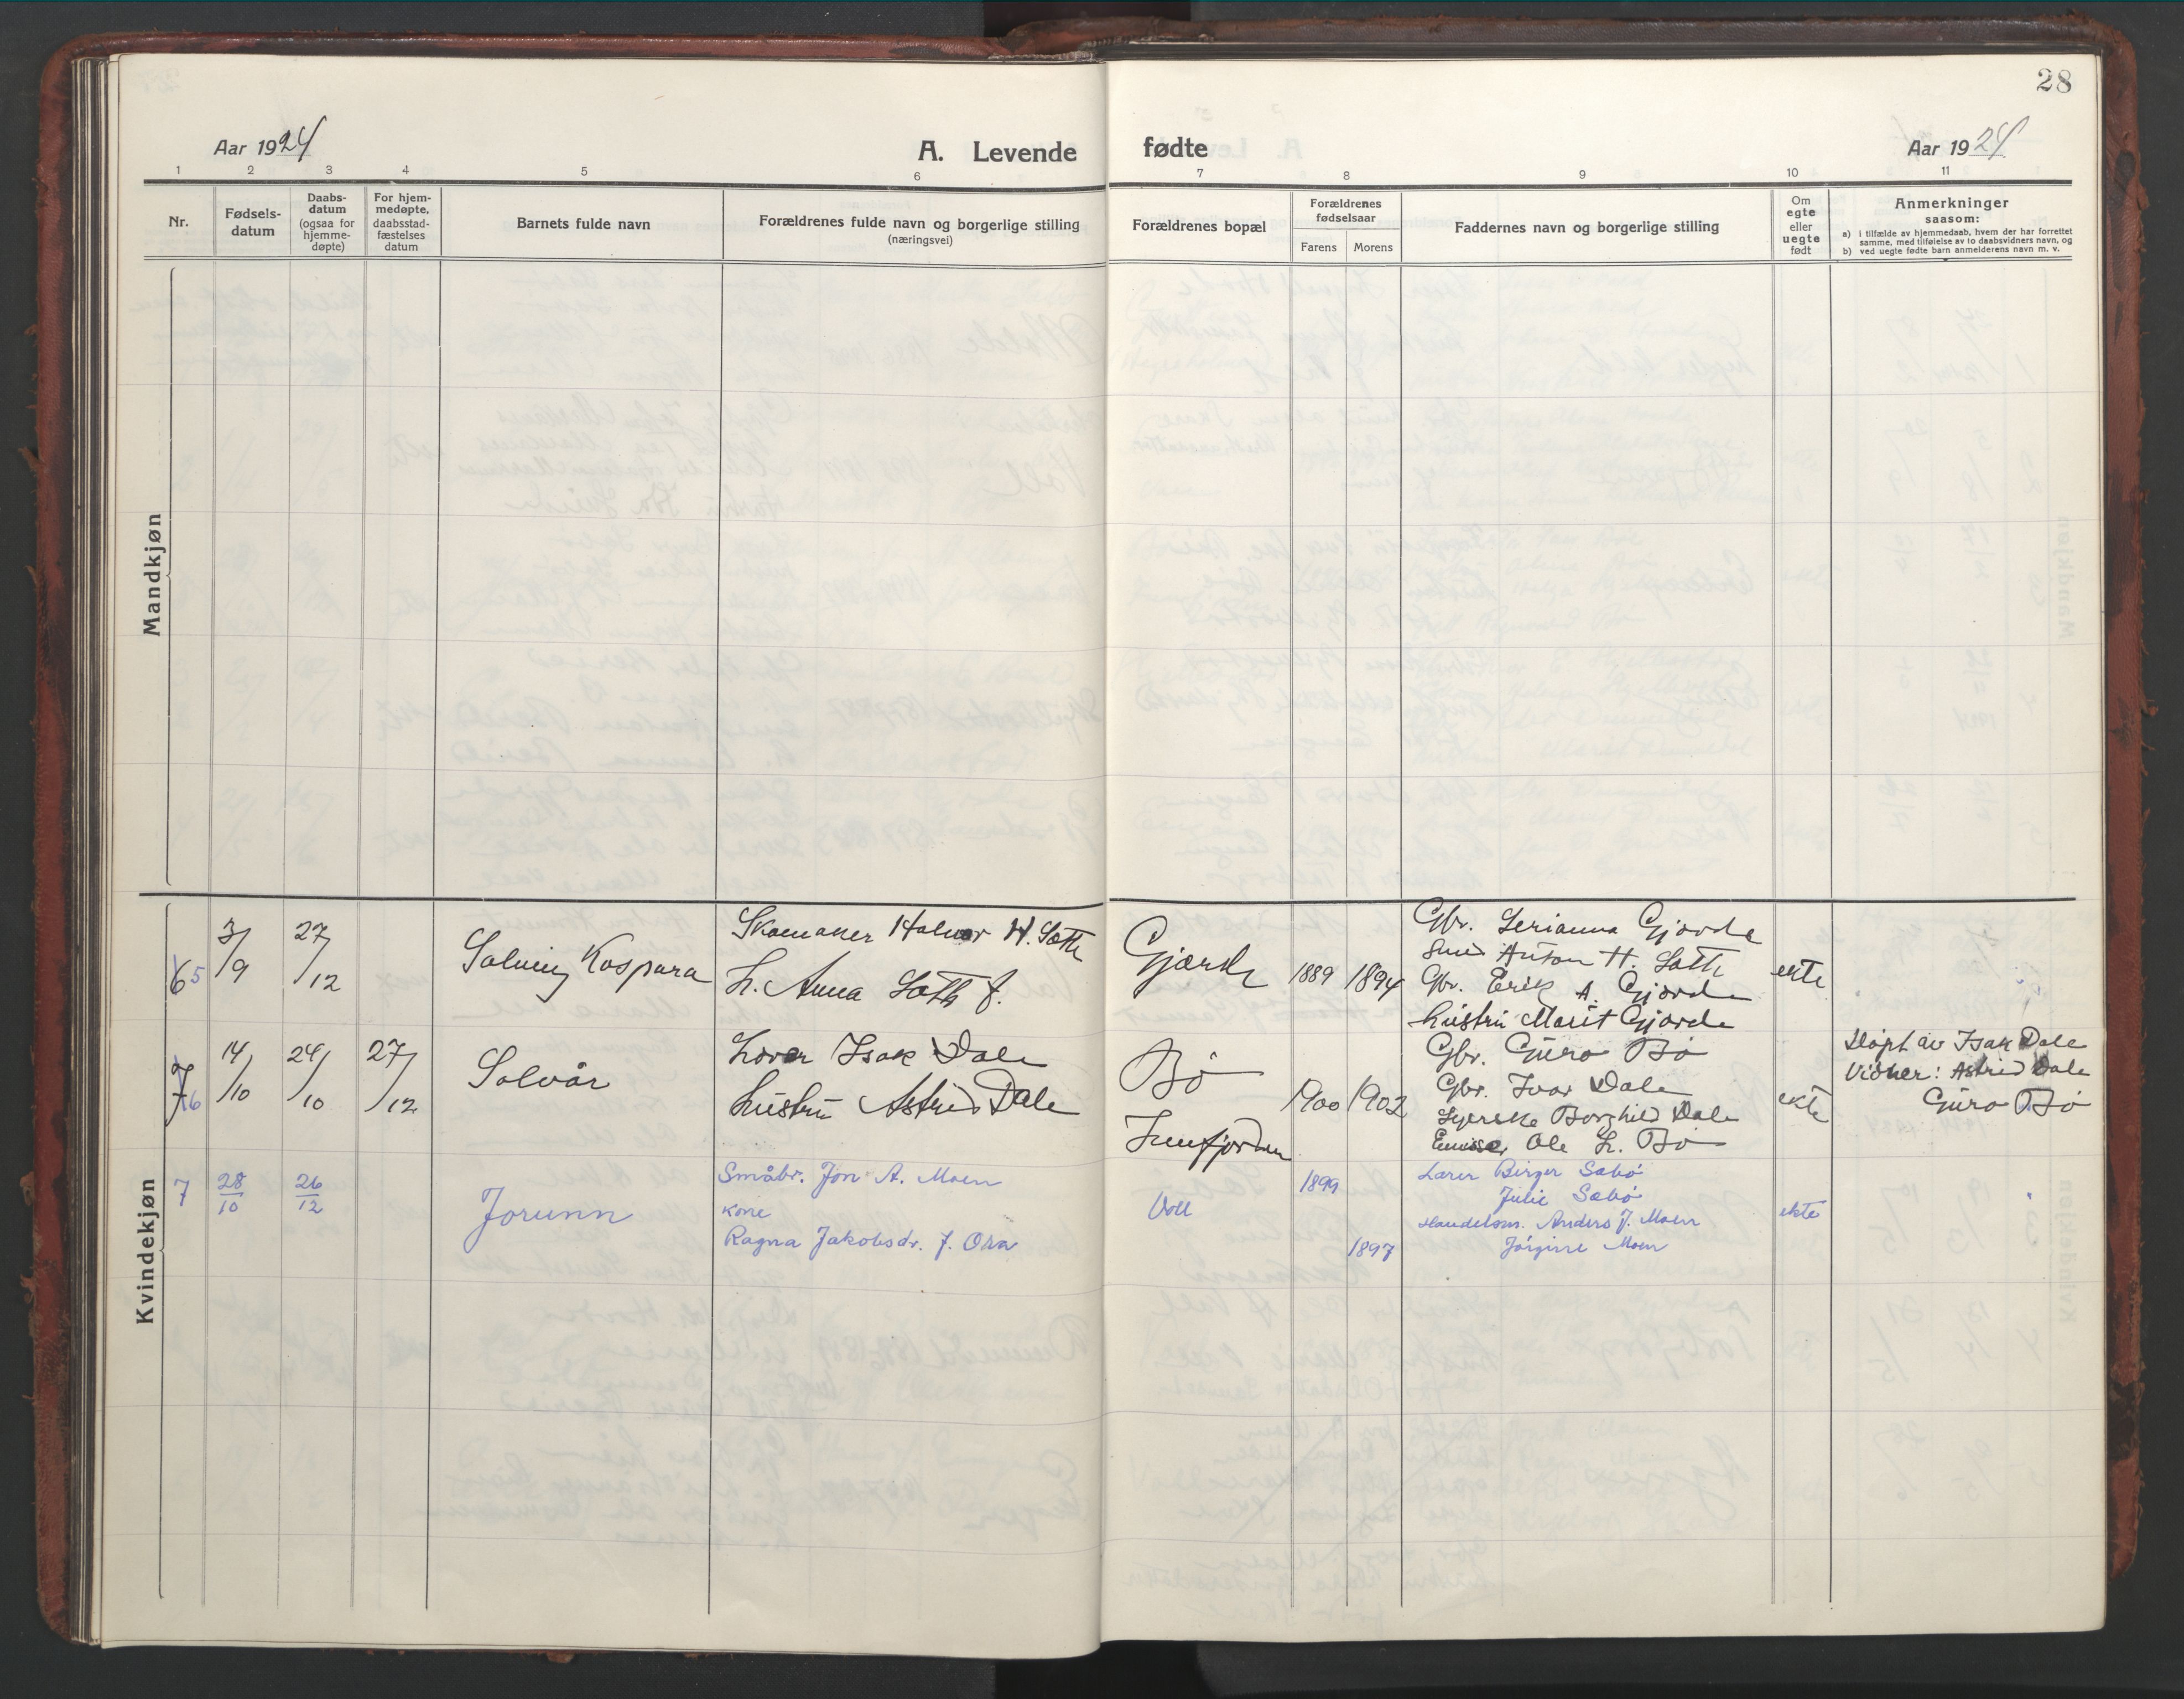 28
Aar 1924
A. Levende fødte
Aar 1924
1 2 3 4 5 6 7 8 9 10 11
Nr.
Fødsels-
datum
Daabs-
datum
(ogsaa for
hjemme-
døpte)
For hjem-
medøpte,
daabsstad-
fæstelses
datum
Barnets fulde navn
Forældrenes fulde navn og borgerlige stilling
(næringsvei)
Forældrenes bopæl
Forældrenes
fødselsaar
Farens Morens
Faddernes navn og borgerlige stilling
Om
egte
eller
uegte
født
Anmerkninger
saasom:
a) i tilfælde av hjemmedaab, hvem der har forrettet
samme, med tilføielse av to daabsvidners navn, og
b) ved uegte fødte barn anmelderens navn m. v.
Mandkjøn
Kvindekjøn
6 5
3/9
27/12
Solveig Kaspara
Skomaker Halvor H. Sæth
h. Anna Sæth f.
Gjærde
1889 1894
Gbr. Serianna Gjærde
Smed Anton H. Sæth
Gbr. Erik A. Gjærde
hustru Marit Gjærde
ekte
7 6
14/10
24/10
27/12
Solvår
Lærer Isak Dale
hustru Astrid Dale
Bø
Innfjorden
1900 1902
Gbr. Guro Bø
Gbr. Ivar Dale
Syerske Borghild Dale
Ole L. Bø
ekte
Døpt av Isak Dale
Vidner: Astrid Dale
Guro Bø
7
28/10
26/12
Jorunn
Småbr. Jon A. Moen
kone
Ragna Jakobsdr. f. Ora
Voll
1899
1897
Lærer Birger Sæbø
Julie Sæbø
Handelsm. Anders J. Moen
Jørgine Moen
ekte